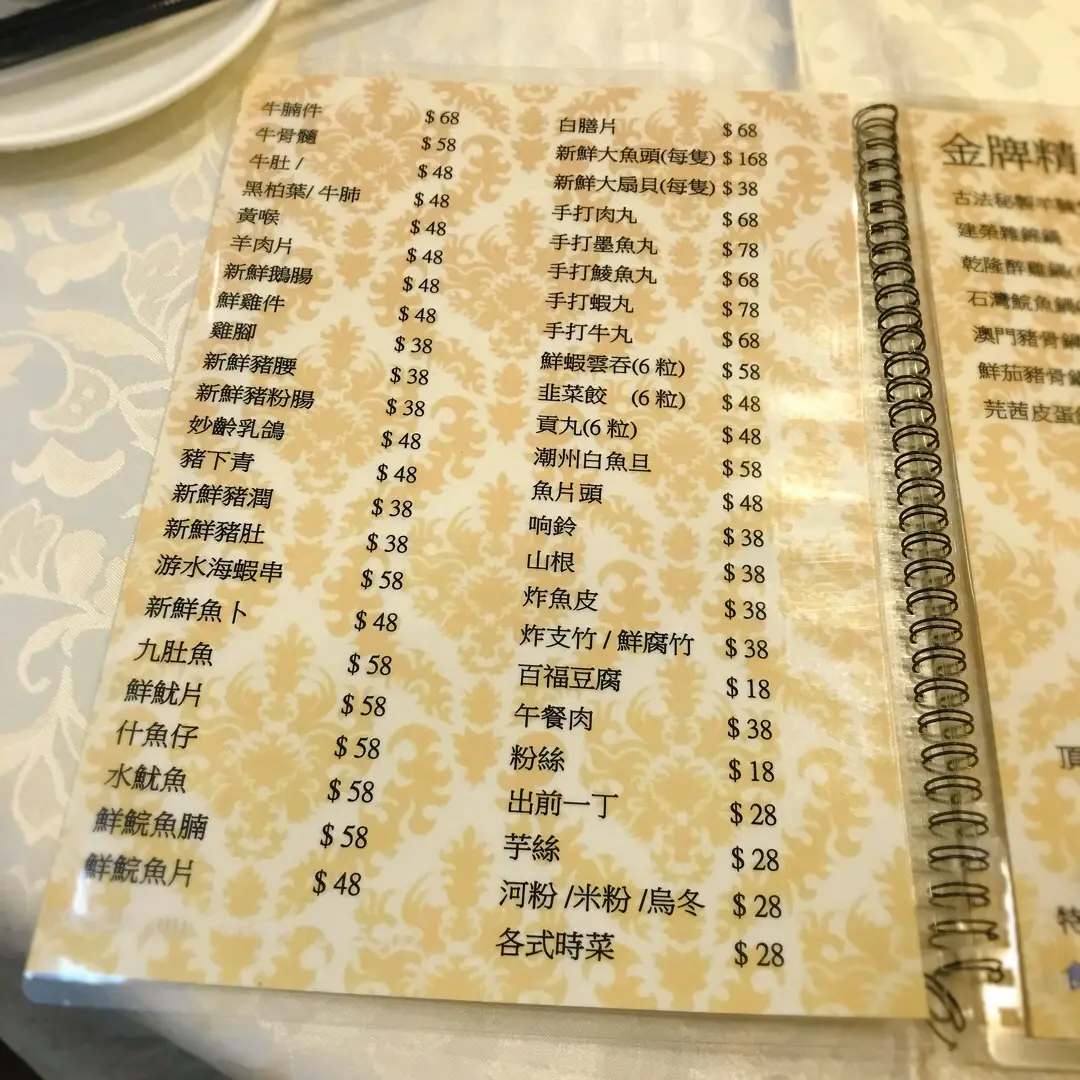 牛腩件 $ 68
牛骨髓 $ 58
牛肚 / $ 48
黑柏葉/ 牛肺 $ 48
黃喉 $ 48
羊肉片 $ 48
新鮮鵝腸 $ 48
鮮雞件 $ 48
雞腳 $ 38
新鮮豬腰 $ 38
新鮮豬粉腸 $ 38
妙齡乳鴿 $ 48
豬下青 $ 48
新鮮豬潤 $ 38
新鮮豬肚 $ 38
游水海蝦串 $ 58
新鮮魚卜 $ 48
九肚魚 $ 58
鮮魷片 $ 58
什魚仔 $ 58
水魷魚 $ 58
鮮鯇魚腩 $ 58
鮮鯇魚片 $ 48
白膳片 $ 68
新鮮大魚頭(每隻) $ 168
新鮮大扇貝(每隻) $ 38
手打肉丸 $ 68
手打墨魚丸 $ 78
手打鯪魚丸 $ 68
手打蝦丸 $ 78
手打牛丸 $ 68
鮮蝦雲吞(6 粒) $ 58
韭菜餃 (6 粒) $ 48
貢丸(6 粒) $ 48
潮州白魚旦 $ 58
魚片頭 $ 48
响鈴 $ 38
山根 $ 38
炸魚皮 $ 38
炸支竹 / 鮮腐竹 $ 38
百福豆腐 $ 18
午餐肉 $ 38
粉絲 $ 18
出前一丁 $ 28
芋絲 $ 28
河粉 /米粉 /烏冬 $ 28
各式時菜 $ 28
金牌精
古法秘製羊腩
建榮雜錦鍋
乾隆醉雞鍋
石灣鯇魚鍋
澳門豬骨鍋
鮮茄豬骨鍋
芫茜皮蛋
頂
特